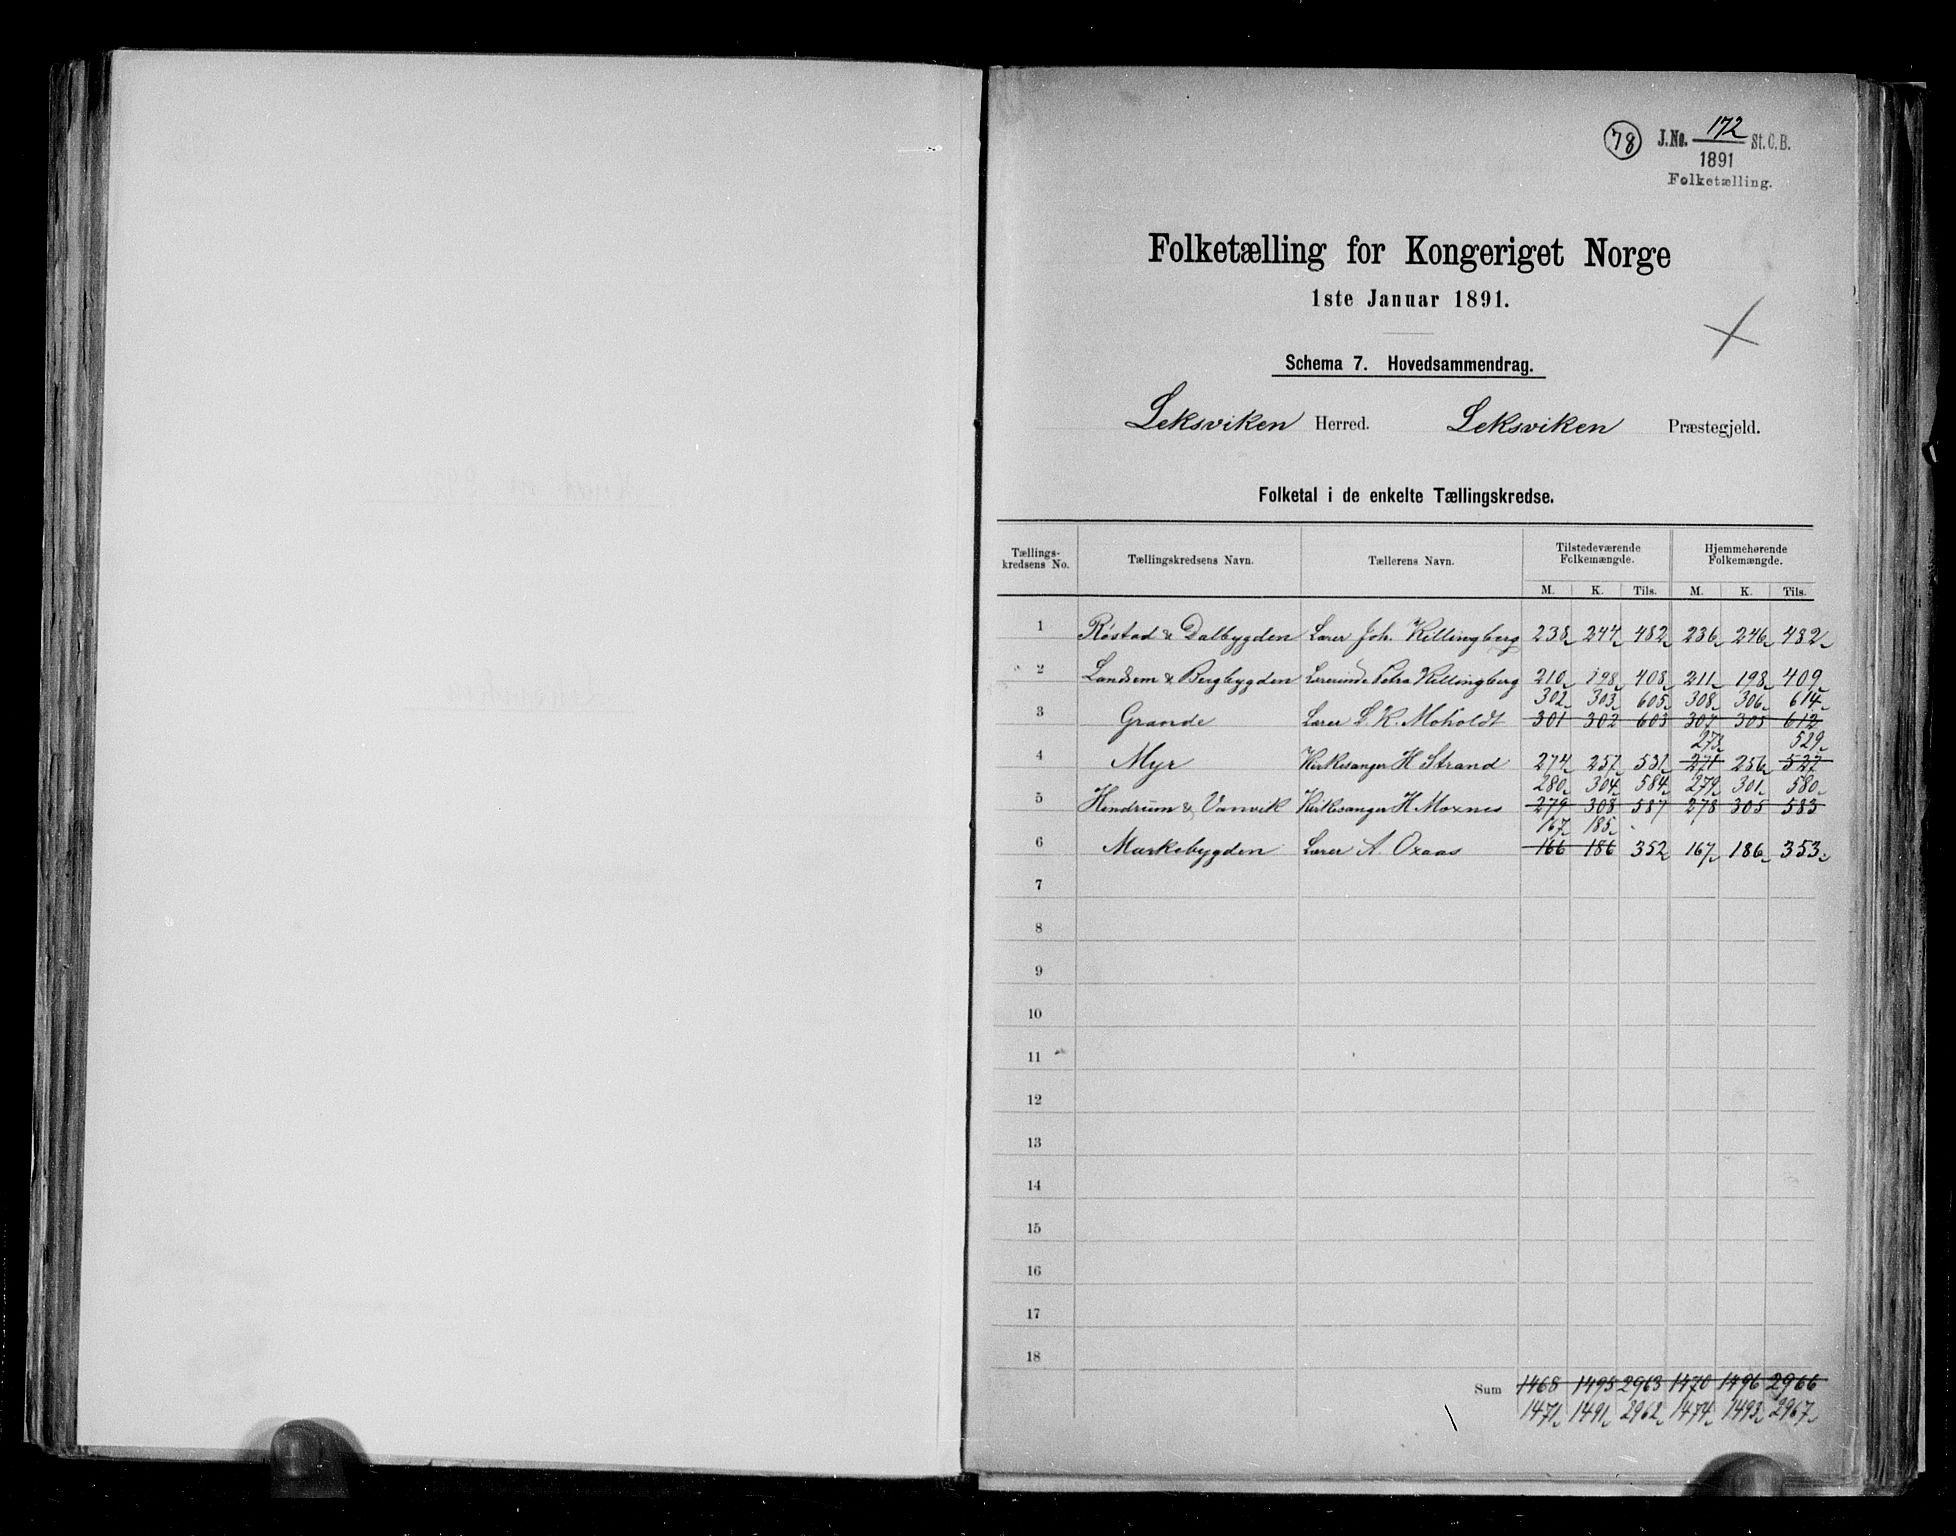 78 J.No. 172 St.C.B.
1891
Folketælling.
Folketælling for Kongeriget Norge
1ste Januar 1891.
Schema 7. Hovedsammendrag.
Leksviken Herred. Leksviken Præstegjeld.
Folketal i de enkelte Tællingskredse.
Tællings-kredsens No. Tællingskredsens Navn. Tællerens Navn. Tilstedeværende Folkemængde. Hjemmehørende Folkemængde.
M. K. Tils. M. K. Tils.
1 Røstad & Dalbygden Lærer Joh. Killingberg 238 244 482 236 246 482
2 Landsem & Bergbygden Lærerinde Petra Killingberg 210 198 408 211 198 409
302 303 605 308 306 614
3 Grande Lærer L. K. Moholdt 301 302 603 307 305 612
273 529
4 Myr Kirkesanger H Strand 274 257 531 271 256 527
280 304 584 279 301 580
5 Hindrum & Vanvik Kirkesanger H Moxnes 279 308 587 278 305 583
167 185
6 Markabygden Lærer A. Oxaas 166 186 352 167 186 353
7
8
9
10
11
12
13
14
15
16
17
18
Sum 1468 1495 2963 1470 1496 2966
1471 1491 2962 1474 1493 2967